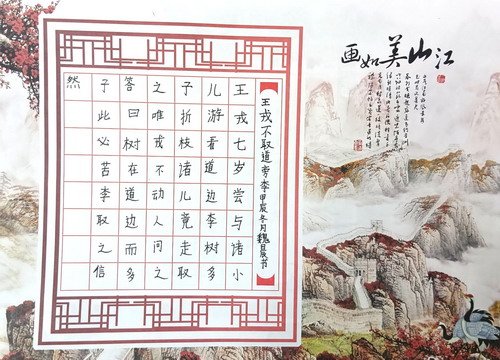 江山美如画
王戎不取道旁李甲辰冬月魏晨书
王戎七岁尝与诸小
儿游看道边李树多
子折枝诸儿竟走取
之唯戎不动人问之
答曰树在道边而多
子此必苦李取之信
然